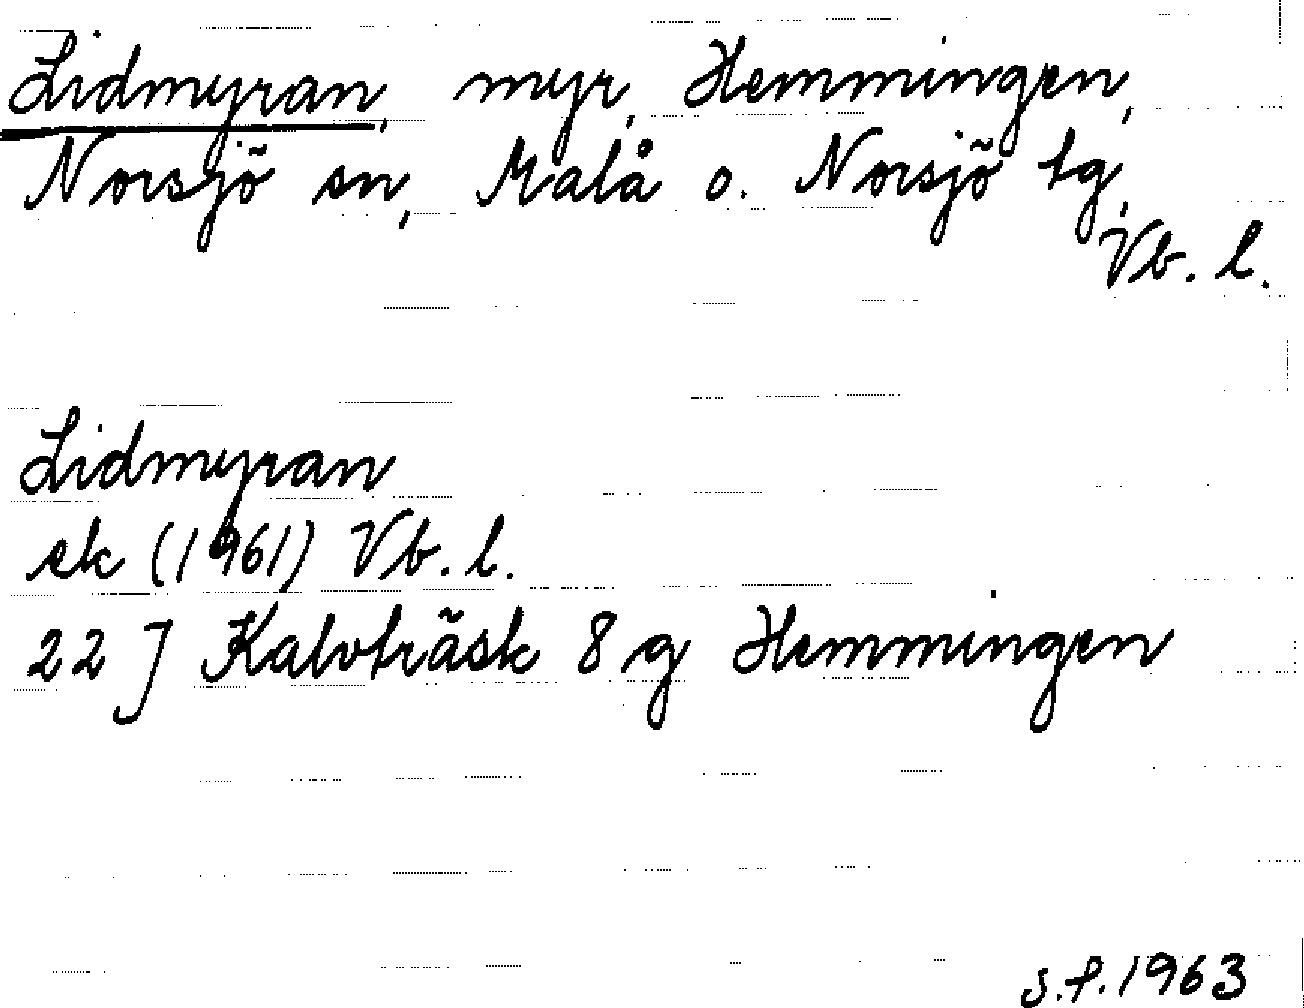 Lidmyran, myr, Hemmingen,
Norsjö sn, Malå o. Norsjö tg,
Vb. l.
Lidmyran
ek (1961) Vb. l.
22 J Kalvträsk 8 g Hemmingen
s.f. 1963